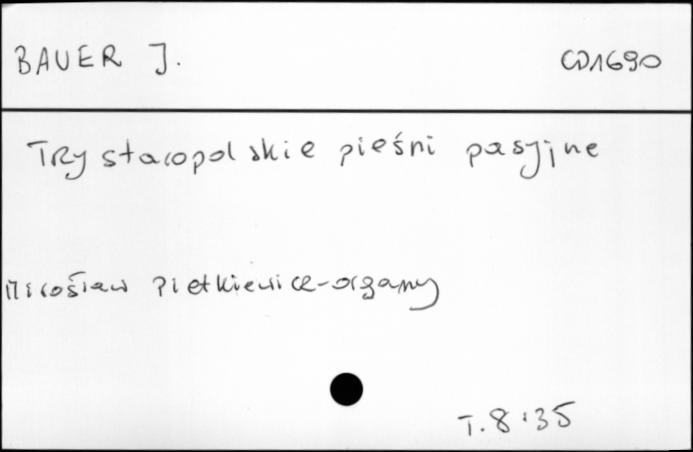 BAUER J.
CD1690
TRzy staropolskie pieśni pasyjne
Mirosław Pietkiewicz-organy
T.8:35